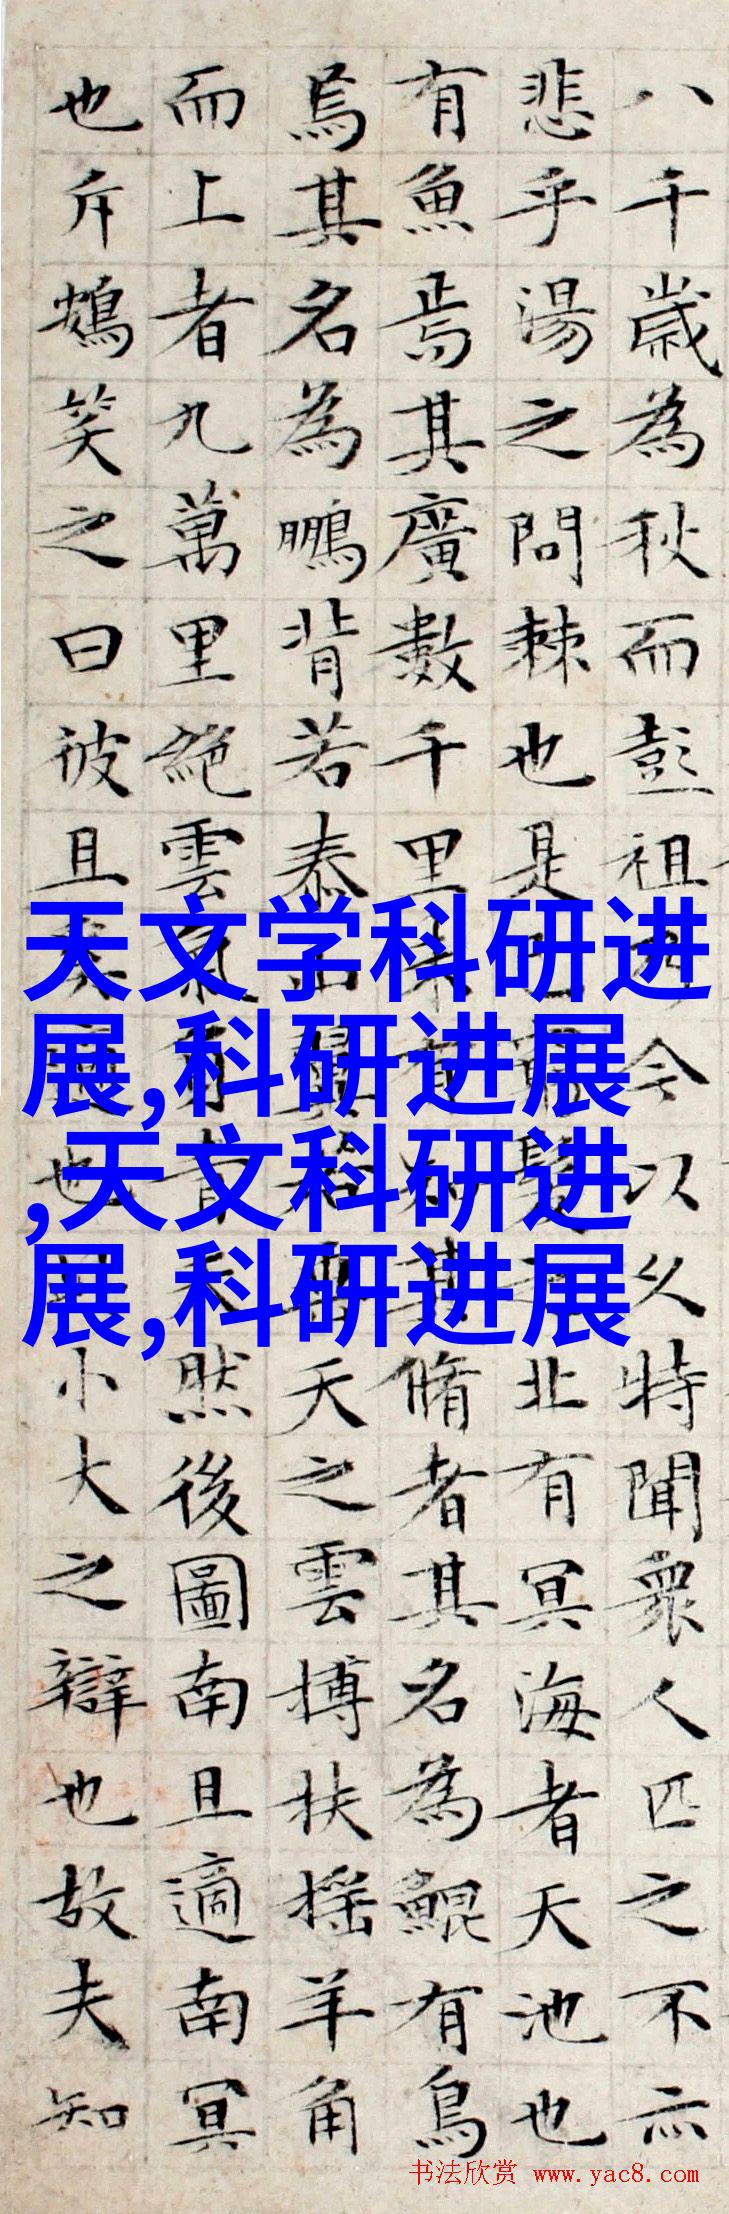 八千歲為秋而彭祖乃今以久特聞眾人匹之不亦
悲乎湯之問棘也是已窮髮之北有冥海者天池也
有魚焉其廣數千里未有知其脩者其名為鯤有鳥
焉其名為鵬背若泰山翼若垂天之雲搏扶搖羊角
而上者九萬里絕雲氣負青天然後圖南且適南冥
也斥鴳笑之曰彼且奚適也此小大之辯也故夫知
天文学科研进
展,科研进展
,天文科研进
展,科研进展
书法欣赏 www.yac8.com